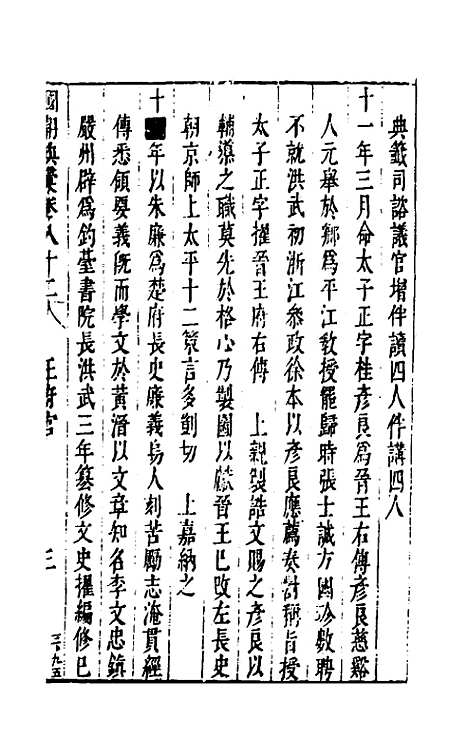 典籤司諮議官增伴讀四人伴講四人
十一年三月命太子正字桂彥良爲晉王右傅彥良慈谿
人元舉於鄉爲平江教授罷歸時張士誠方國珍數聘
不就洪武初浙江叅政徐本以彥良應薦奏對稱旨授
太子正字擢晉王府右傅　上親製誥文賜之彥良以
輔導之職莫先於格心乃製圖以獻晉王巳改左長史
朝京師上太平十二策言多剴切　上嘉納之
十年以朱廉爲楚府長史廉義烏人刻苦勵志淹貫經
傳悉領要義旣而學文於黃溍以文章知名李文忠鎮
嚴州辟爲釣臺書院長洪武三年纂修文史擢編修巳
國朝典彙卷八十二　王府官　三
三九五